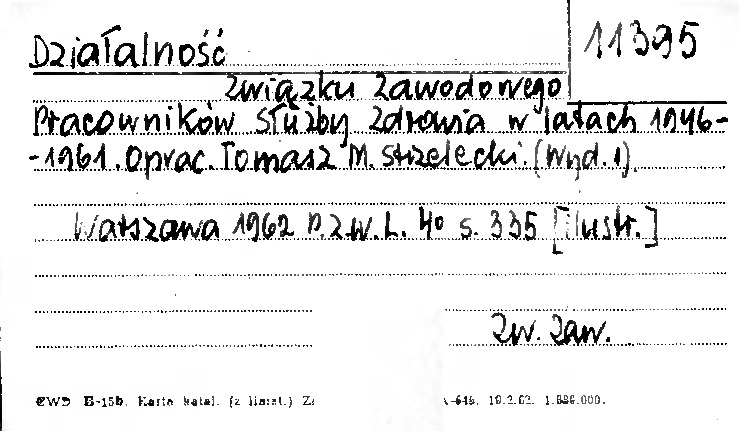 11395
Działalność
Związku Zawodowego
Pracowników Służby Zdrowia w latach 1946-
-1961. Oprac. Tomasz M. Strzelecki. (Wyd. 1).
Warszawa 1962 P.Z.W.L. 4o s. 335 [ilustr.]
Zw. Zaw.
CWD E-15b. Karta katal. (z liniat.) 19.2.62.